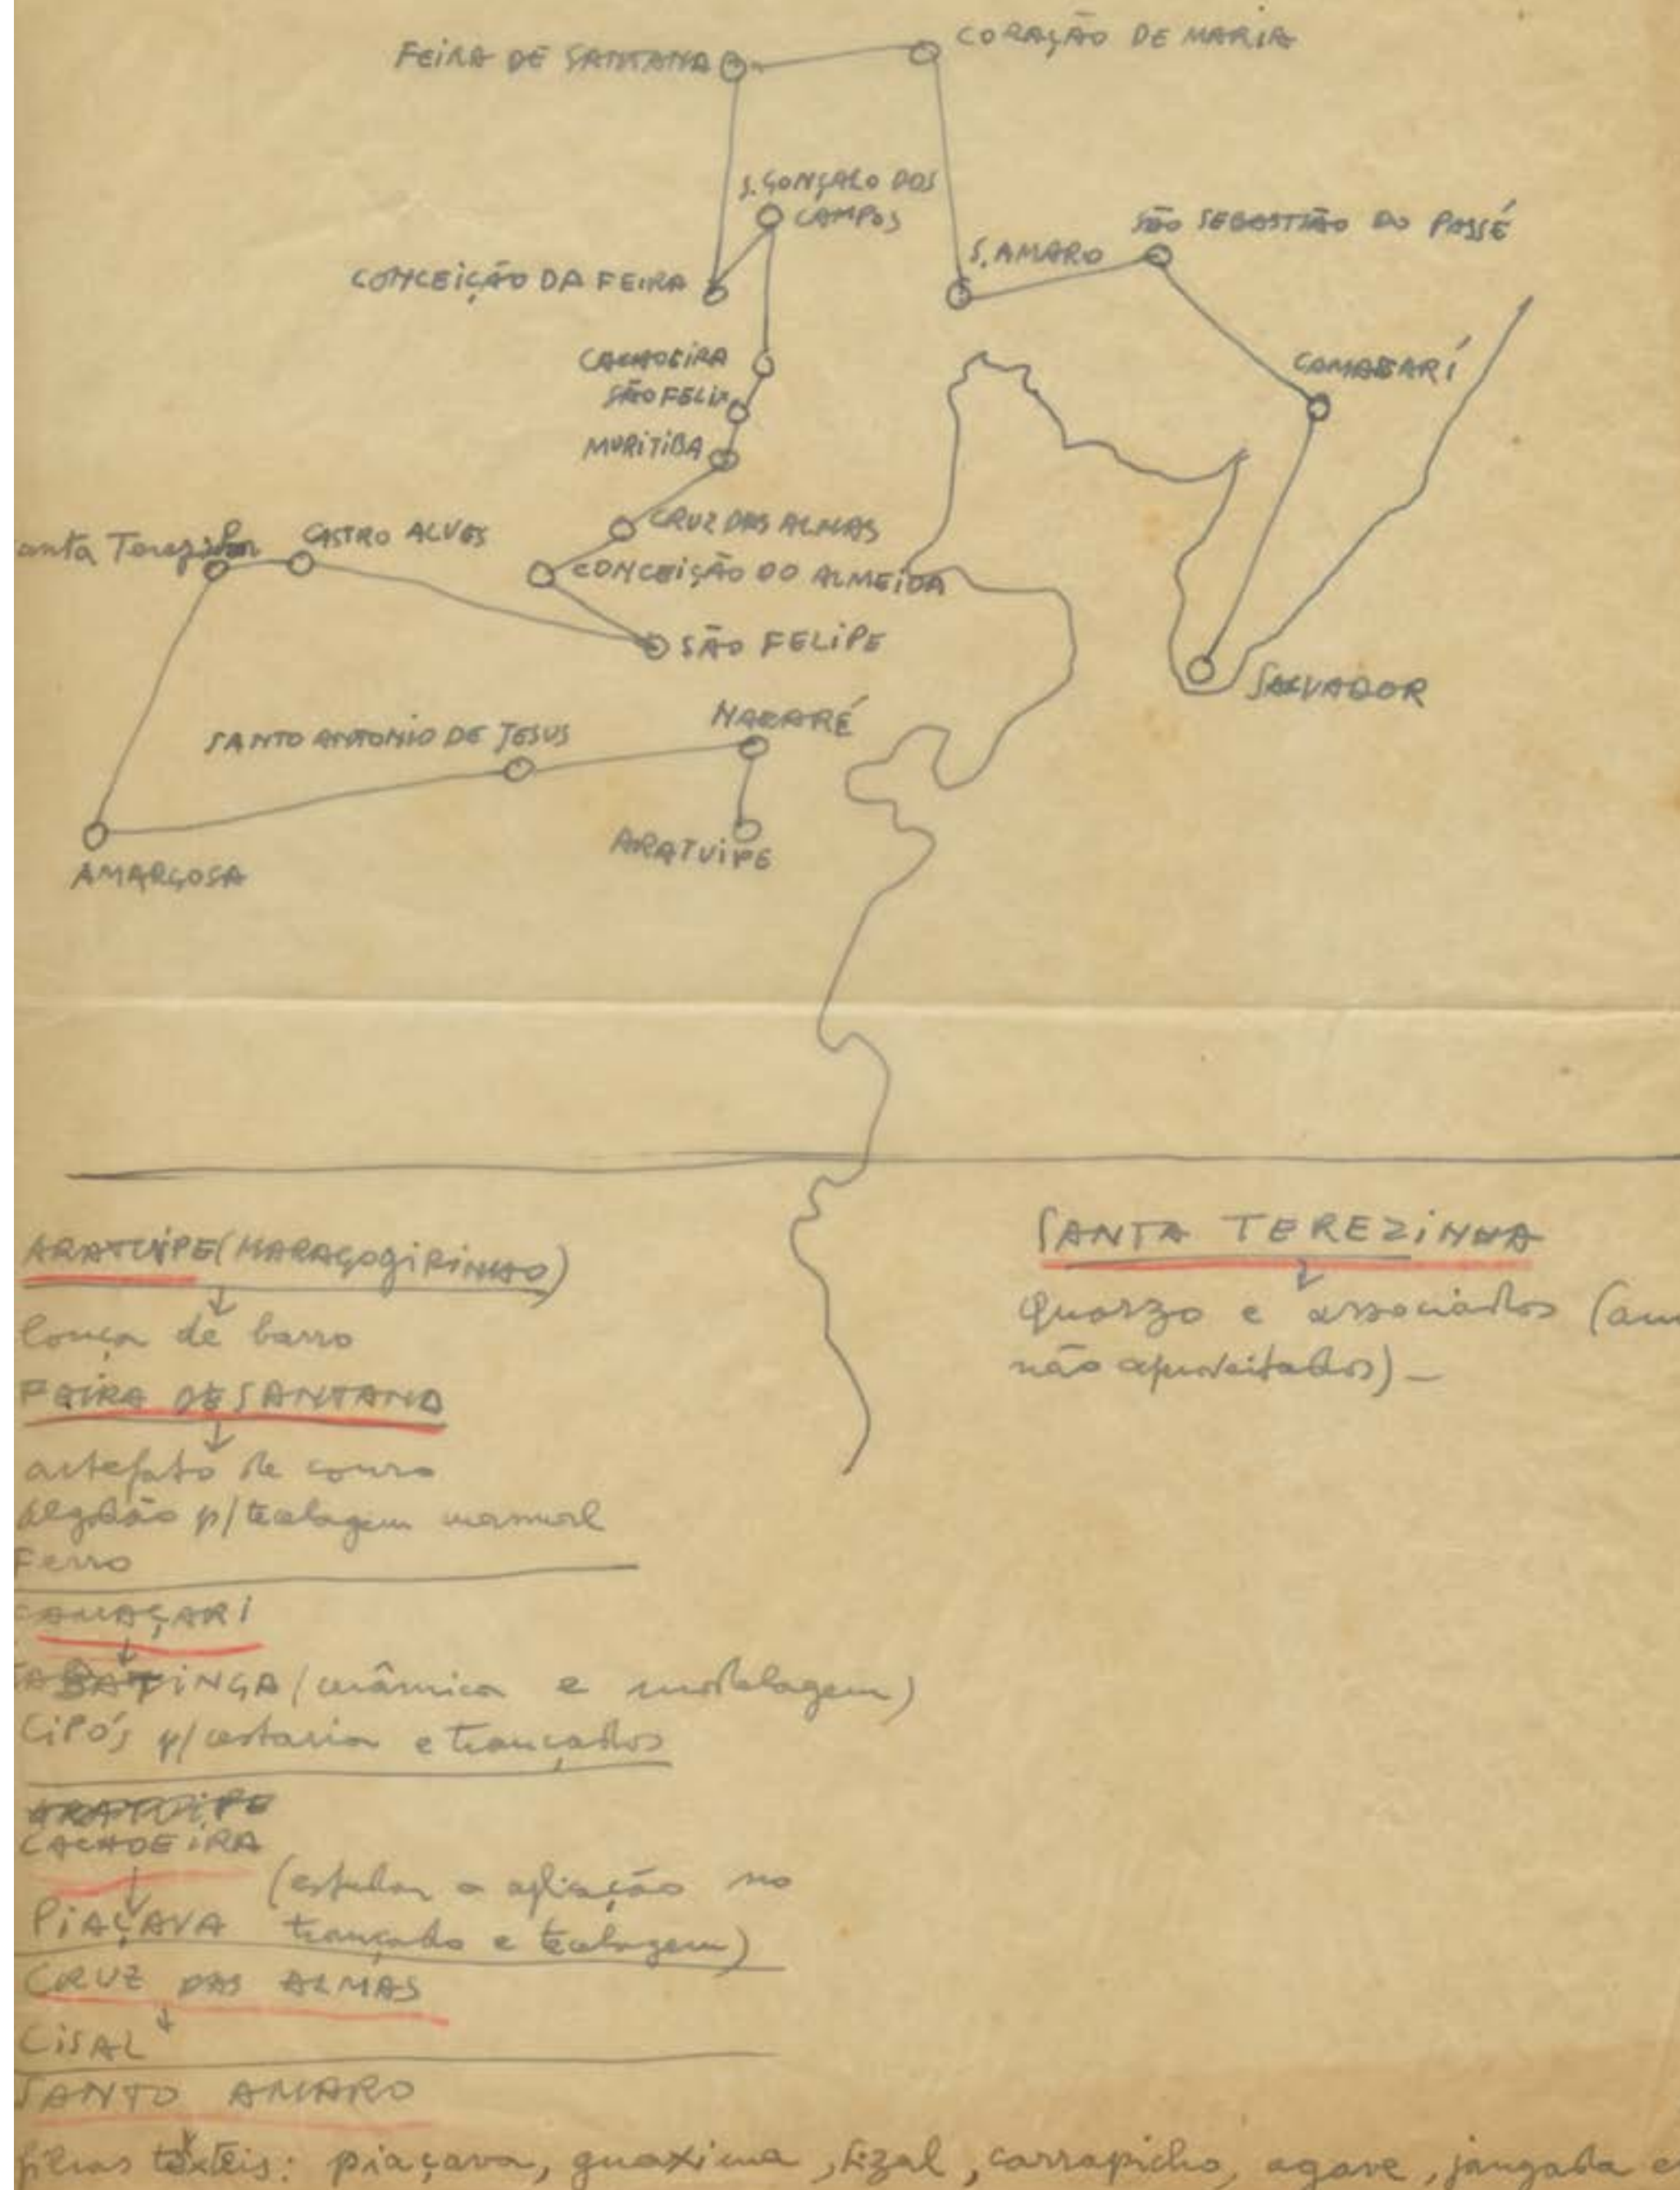 FEIRA DE SANTANA
CORAÇÃO DE MARIA
S. GONÇALO DOS
CAMPOS
SÃO SEBASTIÃO DO PASSÉ
S. AMARO
CONCEIÇÃO DA FEIRA
CACHOEIRA
CAMAÇARÍ
SÃO FELIX
MURITIBA
CRUZ DAS ALMAS
anta Terezinha
CASTRO ALVES
CONCEIÇÃO DO ALMEIDA
SÃO FELIPE
SALVADOR
NAZARÉ
SANTO ANTONIO DE JESUS
ARATUIPE
AMARGOSA
ARATUIPE (MARAGOGIPINHO)
louça de barro
FEIRA DE SANTANA
artefato de couro
algodão p/ tecelagem manual
Ferro
CAMAÇARI
TABATINGA (cerâmica e modelagem)
CIPÓS p/ cestaria e trançados
ARATUIPE
CACHOEIRA
PIAÇAVA (estudar a aplicação no
trançado e tecelagem)
CRUZ DAS ALMAS
CISAL
SANTO AMARO
fibras têxteis: piaçava, guaxima, sizal, carrapicho, agave, jangada
SANTA TEREZINHA
Quarzo e associados
não aproveitados) –